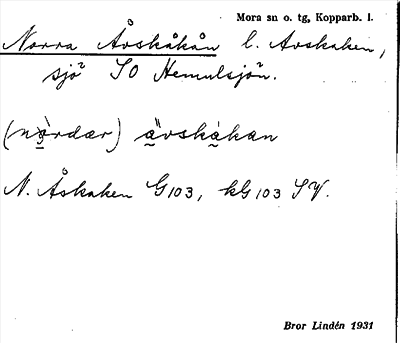 Mora sn o. tg, Kopparb. l.
Norra Åvskåkån l. Avskaken,
sjö SO Hemulsjön.
(nọ̀rdær) ä̀vskakan
N. Åskaken G103, kG 103 SV.
Bror Lindén 1931